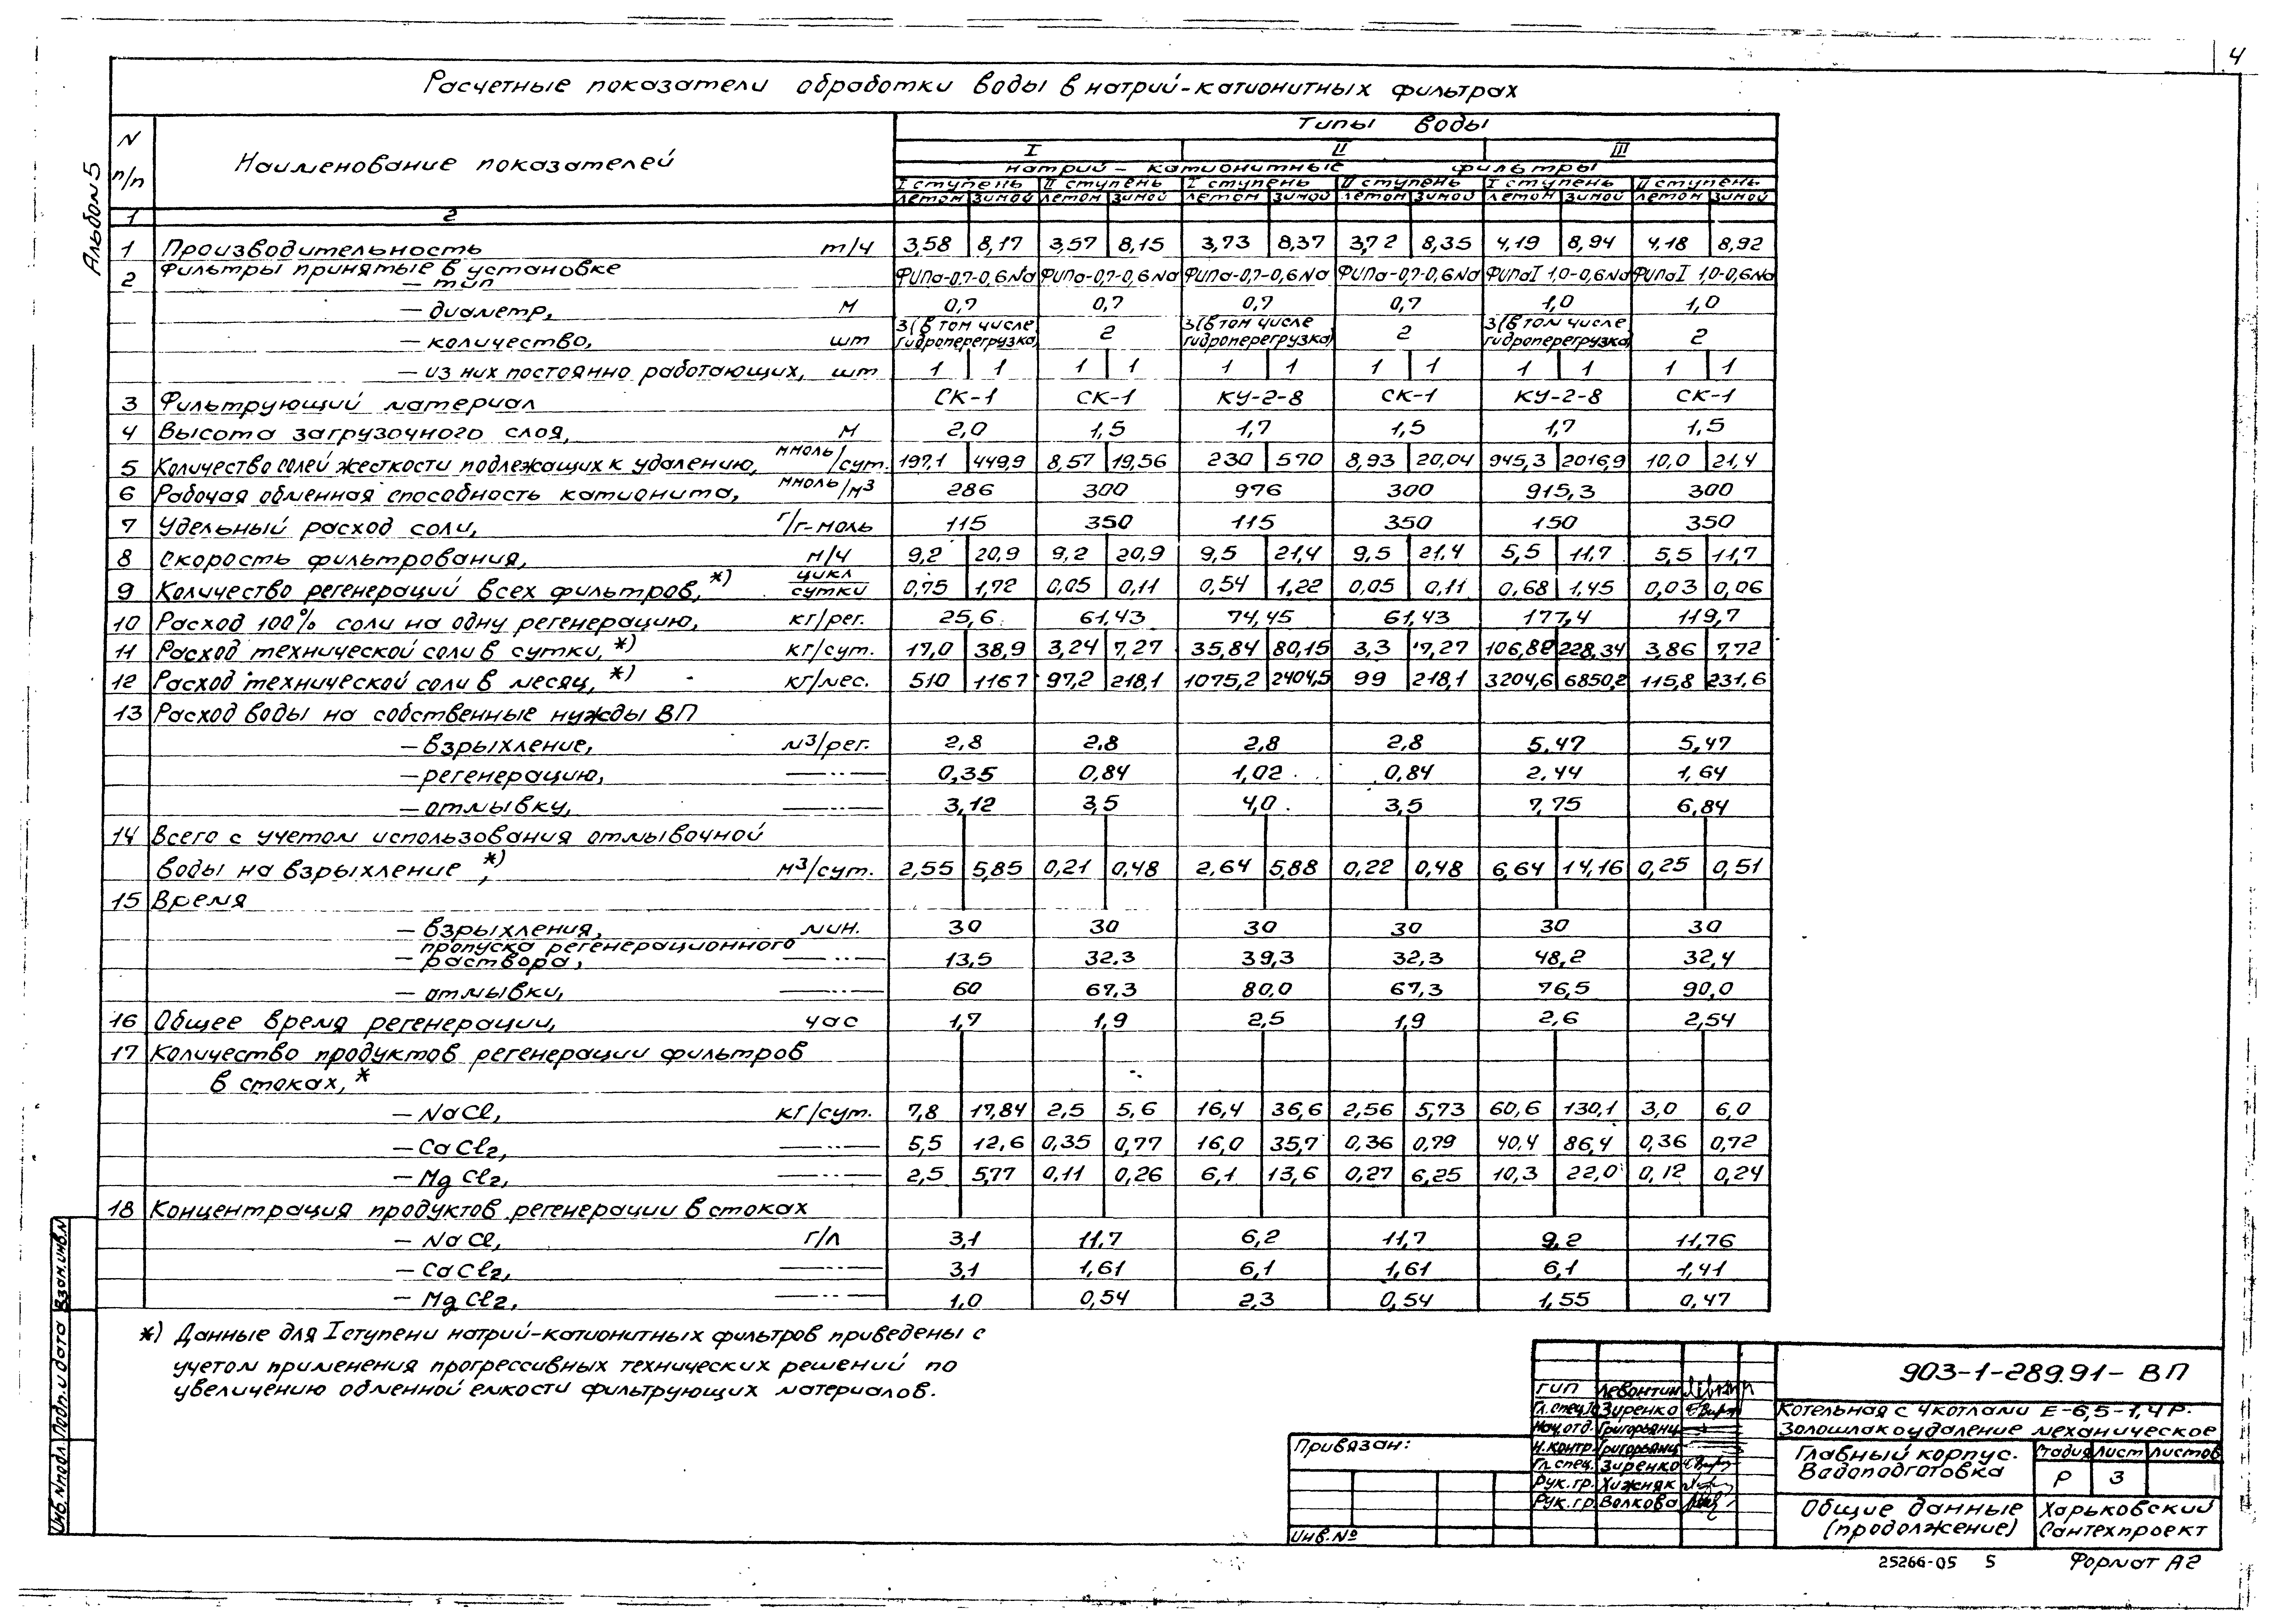 4
Альбом 5
Расчетные показатели обработки воды в натрий-катионитных фильтрах
N п/п Наименование показателей Типы воды
I II III
натрий-катионитные фильтры
I ступень II ступень I ступень II ступень I ступень II ступень
летом зимой летом зимой летом зимой летом зимой летом зимой летом зимой
1 2
1 Производительность т/ч 3,58 8,17 3,57 8,15 3,73 8,37 3,72 8,35 4,19 8,94 4,18 8,92
2 Фильтры принятые в установке
— тип ФИПа-0,7-0,6Na ФИПа-0,7-0,6Na ФИПа-0,7-0,6Na ФИПа-0,7-0,6Na ФИПаI 1,0-0,6Na ФИПаI 1,0-0,6Na
— диаметр, м 0,7 0,7 0,7 0,7 1,0 1,0
— количество, шт 3(в том числе гидроперегрузка) 2 3(в том числе гидроперегрузка) 2 3(в том числе гидроперегрузка) 2
— из них постоянно работающих, шт 1 1 1 1 1 1 1 1 1 1 1 1
3 Фильтрующий материал СК-1 СК-1 КУ-2-8 СК-1 КУ-2-8 СК-1
4 Высота загрузочного слоя, м 2,0 1,5 1,7 1,5 1,7 1,5
5 Количество солей жесткости подлежащих к удалению, ммоль/сут. 197,1 449,9 8,57 19,56 230 570 8,93 20,04 945,3 2016,9 10,0 21,4
6 Рабочая обменная способность катионита, ммоль/м3 286 300 976 300 915,3 300
7 Удельный расход соли, г/г-моль 115 350 115 350 150 350
8 Скорость фильтрования, м/ч 9,2 20,9 9,2 20,9 9,5 21,4 9,5 21,4 5,5 11,7 5,5 11,7
9 Количество регенераций всех фильтров, *) цикл/сутки 0,75 1,72 0,05 0,11 0,54 1,22 0,05 0,11 0,68 1,45 0,03 0,06
10 Расход 100% соли на одну регенерацию, кг/рег. 25,6 61,43 74,45 61,43 177,4 119,7
11 Расход технической соли в сутки, *) кг/сут. 17,0 38,9 3,24 7,27 35,84 80,15 3,3 7,27 106,82 228,34 3,86 7,72
12 Расход технической соли в месяц, *) кг/мес. 510 1167 97,2 218,1 1075,2 2404,5 99 218,1 3204,6 6850,2 115,8 231,6
13 Расход воды на собственные нужды ВП
— взрыхление, м3/рег. 2,8 2,8 2,8 2,8 5,47 5,47
— регенерацию, —··— 0,35 0,84 1,02 0,84 2,44 1,64
— отмывку, —··— 3,12 3,5 4,0 3,5 7,75 6,84
14 Всего с учетом использования отмывочной
воды на взрыхление, *) м3/сут. 2,55 5,85 0,21 0,48 2,64 5,88 0,22 0,48 6,64 14,16 0,25 0,51
15 Время
— взрыхления, мин. 30 30 30 30 30 30
— пропуска регенерационного раствора, —··— 13,5 32,3 39,3 32,3 48,2 32,4
— отмывки, —··— 60 67,3 80,0 67,3 76,5 90,0
16 Общее время регенерации, час 1,7 1,9 2,5 1,9 2,6 2,54
17 Количество продуктов регенерации фильтров
в стоках, *
— NaCl, кг/сут. 7,8 17,84 2,5 5,6 16,4 36,6 2,56 5,73 60,6 130,1 3,0 6,0
— CaCl2, —··— 5,5 12,6 0,35 0,77 16,0 35,7 0,36 0,79 40,4 86,4 0,36 0,72
— MgCl2, —··— 2,5 5,77 0,11 0,26 6,1 13,6 0,27 6,25 10,3 22,0 0,12 0,24
18 Концентрация продуктов регенерации в стоках
— NaCl, г/л 3,1 11,7 6,2 11,7 9,2 11,76
— CaCl2, —··— 3,1 1,61 6,1 1,61 6,1 1,41
— MgCl2, —··— 1,0 0,54 2,3 0,54 1,55 0,47
*) Данные для I ступени натрий-катионитных фильтров приведены с
учетом применения прогрессивных технических решений по
увеличению обменной емкости фильтрующих материалов.
Инв.Nподл. Подп. и дата Взам.инв.N
Привязан:
Инв.№
ГИП Левонтин
Гл.спец. Зиренко
Нач.отд. Григорьянц
Н.контр. Григорьянц
Гл.спец. Зиренко
Рук.гр. Хижняк
Рук.гр. Волкова
903-1-289.91-ВП
Котельная с 4 котлами Е-6,5-1,4Р.
Золошлакоудаление механическое
Главный корпус.
Водоподготовка
Стадия Лист Листов
Р 3
Общие данные
(продолжение)
Харьковский
Сантехпроект
25266-05 5 Формат А2